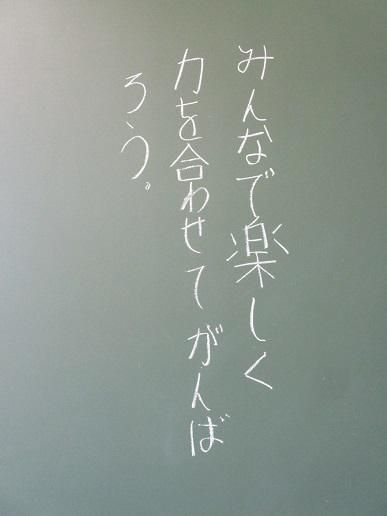 みんなで楽しく
力を合わせてがんば
ろう。